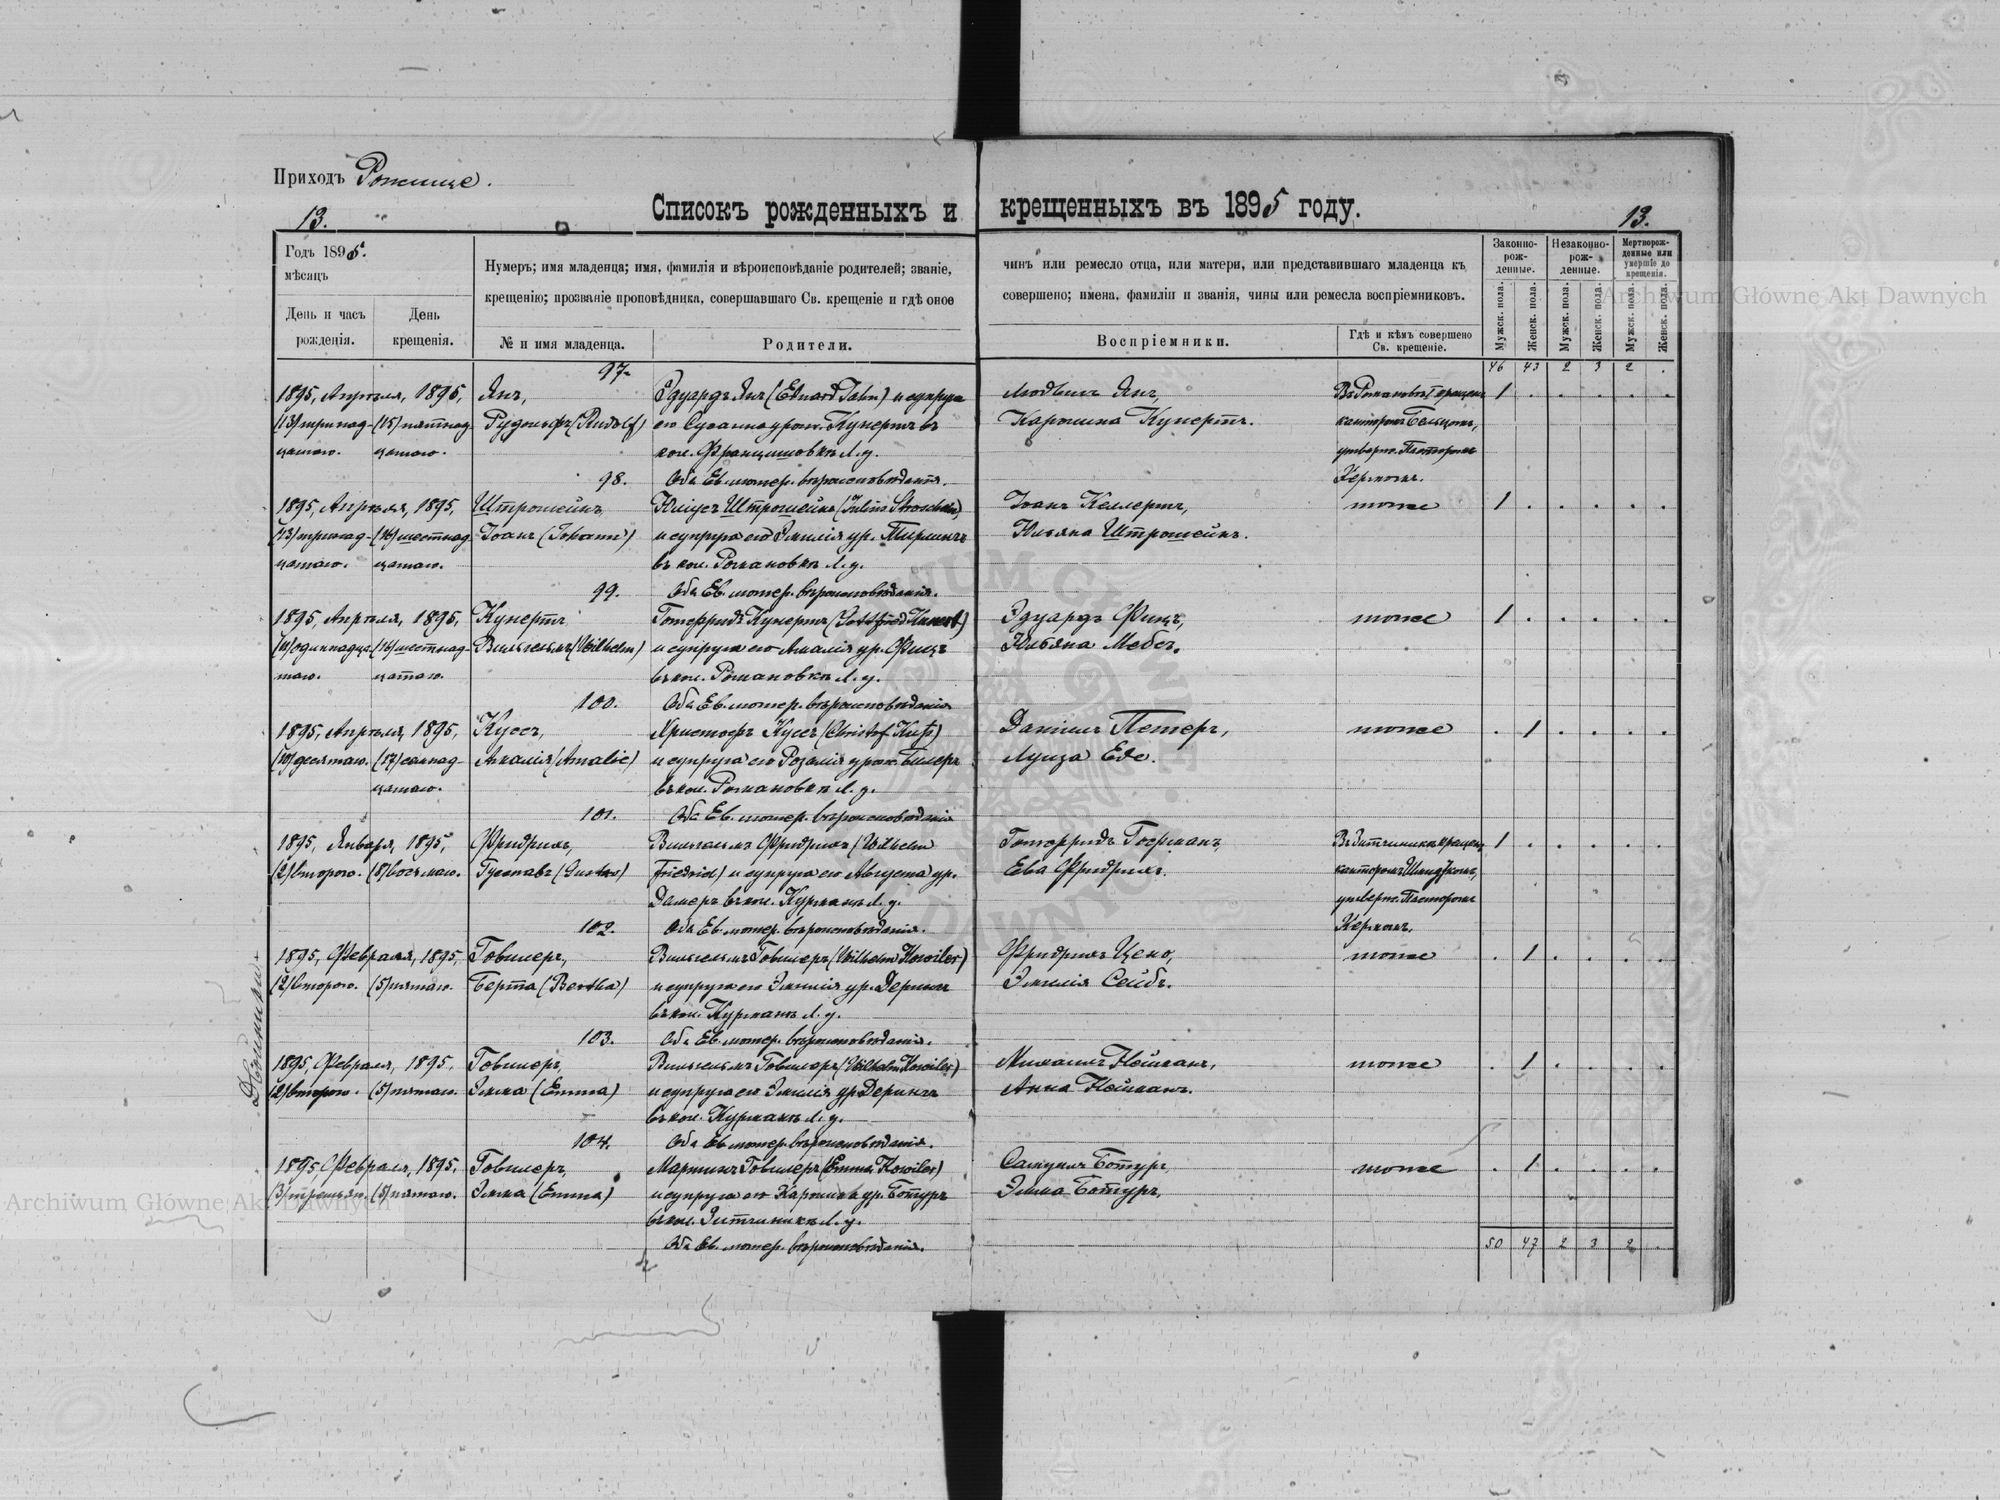 Приходъ Рожище.
13.
Списокъ рожденныхъ и крещенныхъ въ 1895 году.
13.
Годъ 1895.
мѣсяцъ
День и часъ рожденія.
День крещенія.
Нумеръ; имя младенца; имя, фамилія и вѣроисповѣданіе родителей; званіе,
крещенію; прозваніе проповѣдника, совершавшаго Св. крещеніе и гдѣ оное
№ и имя младенца.
Родители.
чинъ или ремесло отца, или матери, или представившаго младенца къ
совершено; имена, фамиліи и званія, чины или ремесла воспріемниковъ.
Воспріемники.
Гдѣ и кѣмъ совершено Св. крещеніе.
Законно-рож-денные.
Незаконно-рож-денные.
Мертворож-денные или умершіе до крещенія.
Мужск. пола.
Женск. пола.
Мужск. пола.
Женск. пола.
Мужск. пола.
Женск. пола.
97.
46 43 2 3 2 .
1895, Апрѣля, 1895, Янъ, Эдуардъ Янъ (Eduard Jahn) и супруга Людвигъ Янъ, 1 . . . . .
(13) тринад- (15) пятнад- Рудольфъ (Rudolf) его Сузанна урож. Кунертъ въ Каролина Кунертъ. канторомъ
цатаго. цатаго. кол. Францишовкѣ Л. у. утвержд. Пасторомъ
98. Оба Ев. лютер. вѣроисповѣданія. Кермомъ.
1895, Апрѣля, 1895, Штрошейнъ, Юліусъ Штрошейнъ (Julius Stroschein) Іоанъ Келлертъ, тоже 1 . . . . .
(13) тринад- (16) шестнад- Іоанъ (Johann) и супруга его Эмилія ур. Юльяна Штрошейнъ.
цатаго. цатаго. въ кол. Романовкѣ Л. у.
99. Оба Ев. лютер. вѣроисповѣданія.
1895, Апрѣля, 1895, Кунертъ Готфридъ Кунертъ (Gottfried Kunert) Эдуардъ Фицъ, тоже 1 . . . . .
(11) одиннадца- (16) шестнад- Вильгельмъ (Wilhelm) и супруга его Амалія ур. Фицъ Юльяна Мебсъ.
таго. цатаго. въ кол. Романовкѣ Л. у.
100. Оба Ев. лютер. вѣроисповѣданія
1895, Апрѣля, 1895, Куссъ, Христофъ Куссъ (Christof Kuß) Даніилъ Петеръ, тоже . 1 . . . .
(10) десятаго. (17) семнад- Амалія (Amalie) и супруга его Розалія урож. Билеръ Луиза Еде.
цатаго. въ кол. Романовкѣ Л. у.
101. Оба Ев. лютер. вѣроисповѣданія
1895, Января, 1895, Фридрихъ, Вильгельмъ Фридрихъ (Wilhelm Готфридъ Гофманъ, 1 . . . . .
(2) второго. (8) восьмаго. Густавъ (Gustav) Friedrich) и супруга его Августа ур. Ева Фридрихъ. канторомъ
Дамеръ въ кол. Курманъ Л. у. утвержд. Пасторомъ
102. Оба Ев. лютер. вѣроисповѣданія. Кермомъ.
1895, Февраля, 1895, Говилеръ, Вильгельмъ Говилеръ (Wilhelm Howiler) Фридрихъ Цехо, тоже . 1 . . . .
(2) второго. (5) пятаго. Берта (Bertha) и супруга его Эмилія ур. Дерингъ Эмилія Сейбъ.
въ кол. Курманъ Л. у.
Двойники.
103. Оба Ев. лютер. вѣроисповѣданія.
1895, Февраля, 1895, Говилеръ, Вильгельмъ Говилеръ (Wilhelm Howiler) Михаилъ Нейманъ, тоже . 1 . . . .
(2) второго. (5) пятаго. Эмма (Emma) и супруга его Эмилія ур. Дерингъ Анна Нейманъ.
въ кол. Курманъ Л. у.
104. Оба Ев. лютер. вѣроисповѣданія.
1895, Февраля, 1895, Говилеръ, Мартинъ Говилеръ (Emma Howiler) Самуилъ Ботуръ, тоже . 1 . . . .
(3) третьяго. (5) пятаго. Эмма (Emma) и супруга его Каролина ур. Ботуръ Эмма Ботуръ,
въ кол. Л. у.
Оба Ев. лютер. вѣроисповѣданія.
50 47 2 3 2 .
Archiwum Główne Akt Dawnych
Archiwum Główne Akt Dawnych